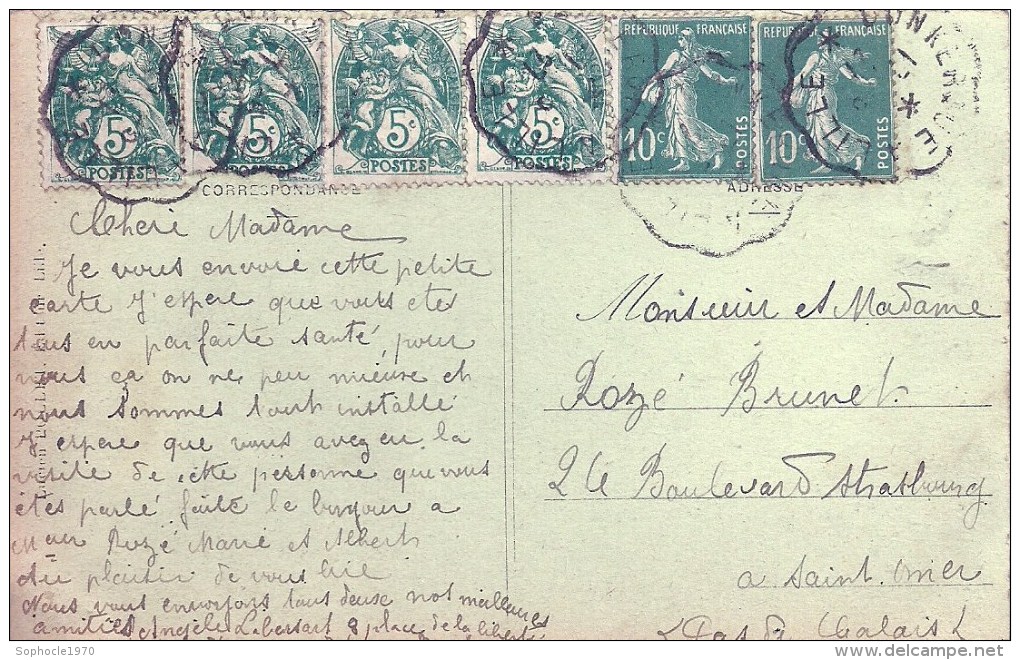 5c
POSTES
5c
POSTES
5c
POSTES
5c
POSTES
REPUBLIQUE FRANÇAISE
10c
POSTES
REPUBLIQUE FRANÇAISE
10c
POSTES
LILLE
DUNKERQUE
CORRESPONDANCE
ADRESSE
Chere Madame
Je vous envoie cette petite
carte J'espere que vous ete
tous en parfaite santé, pour
nous ça on ne peu mieuse et
nous sommes tout installé
J'espere que vous avez eu la
visite de cette personne que vous
êtes parlé faite le bonjour a
Rozé Marie et Albert
au plaisir de vous lire
Nous vous envoyons tous deuse nos meilleures
amitiés Angèle 8 place de la liberté
Monsieur et Madame
Rozé Brunet
26 Boulevard Strasbourg
a Saint Omer
(Pas de Calais)
Sophocle1970
delcampe.net